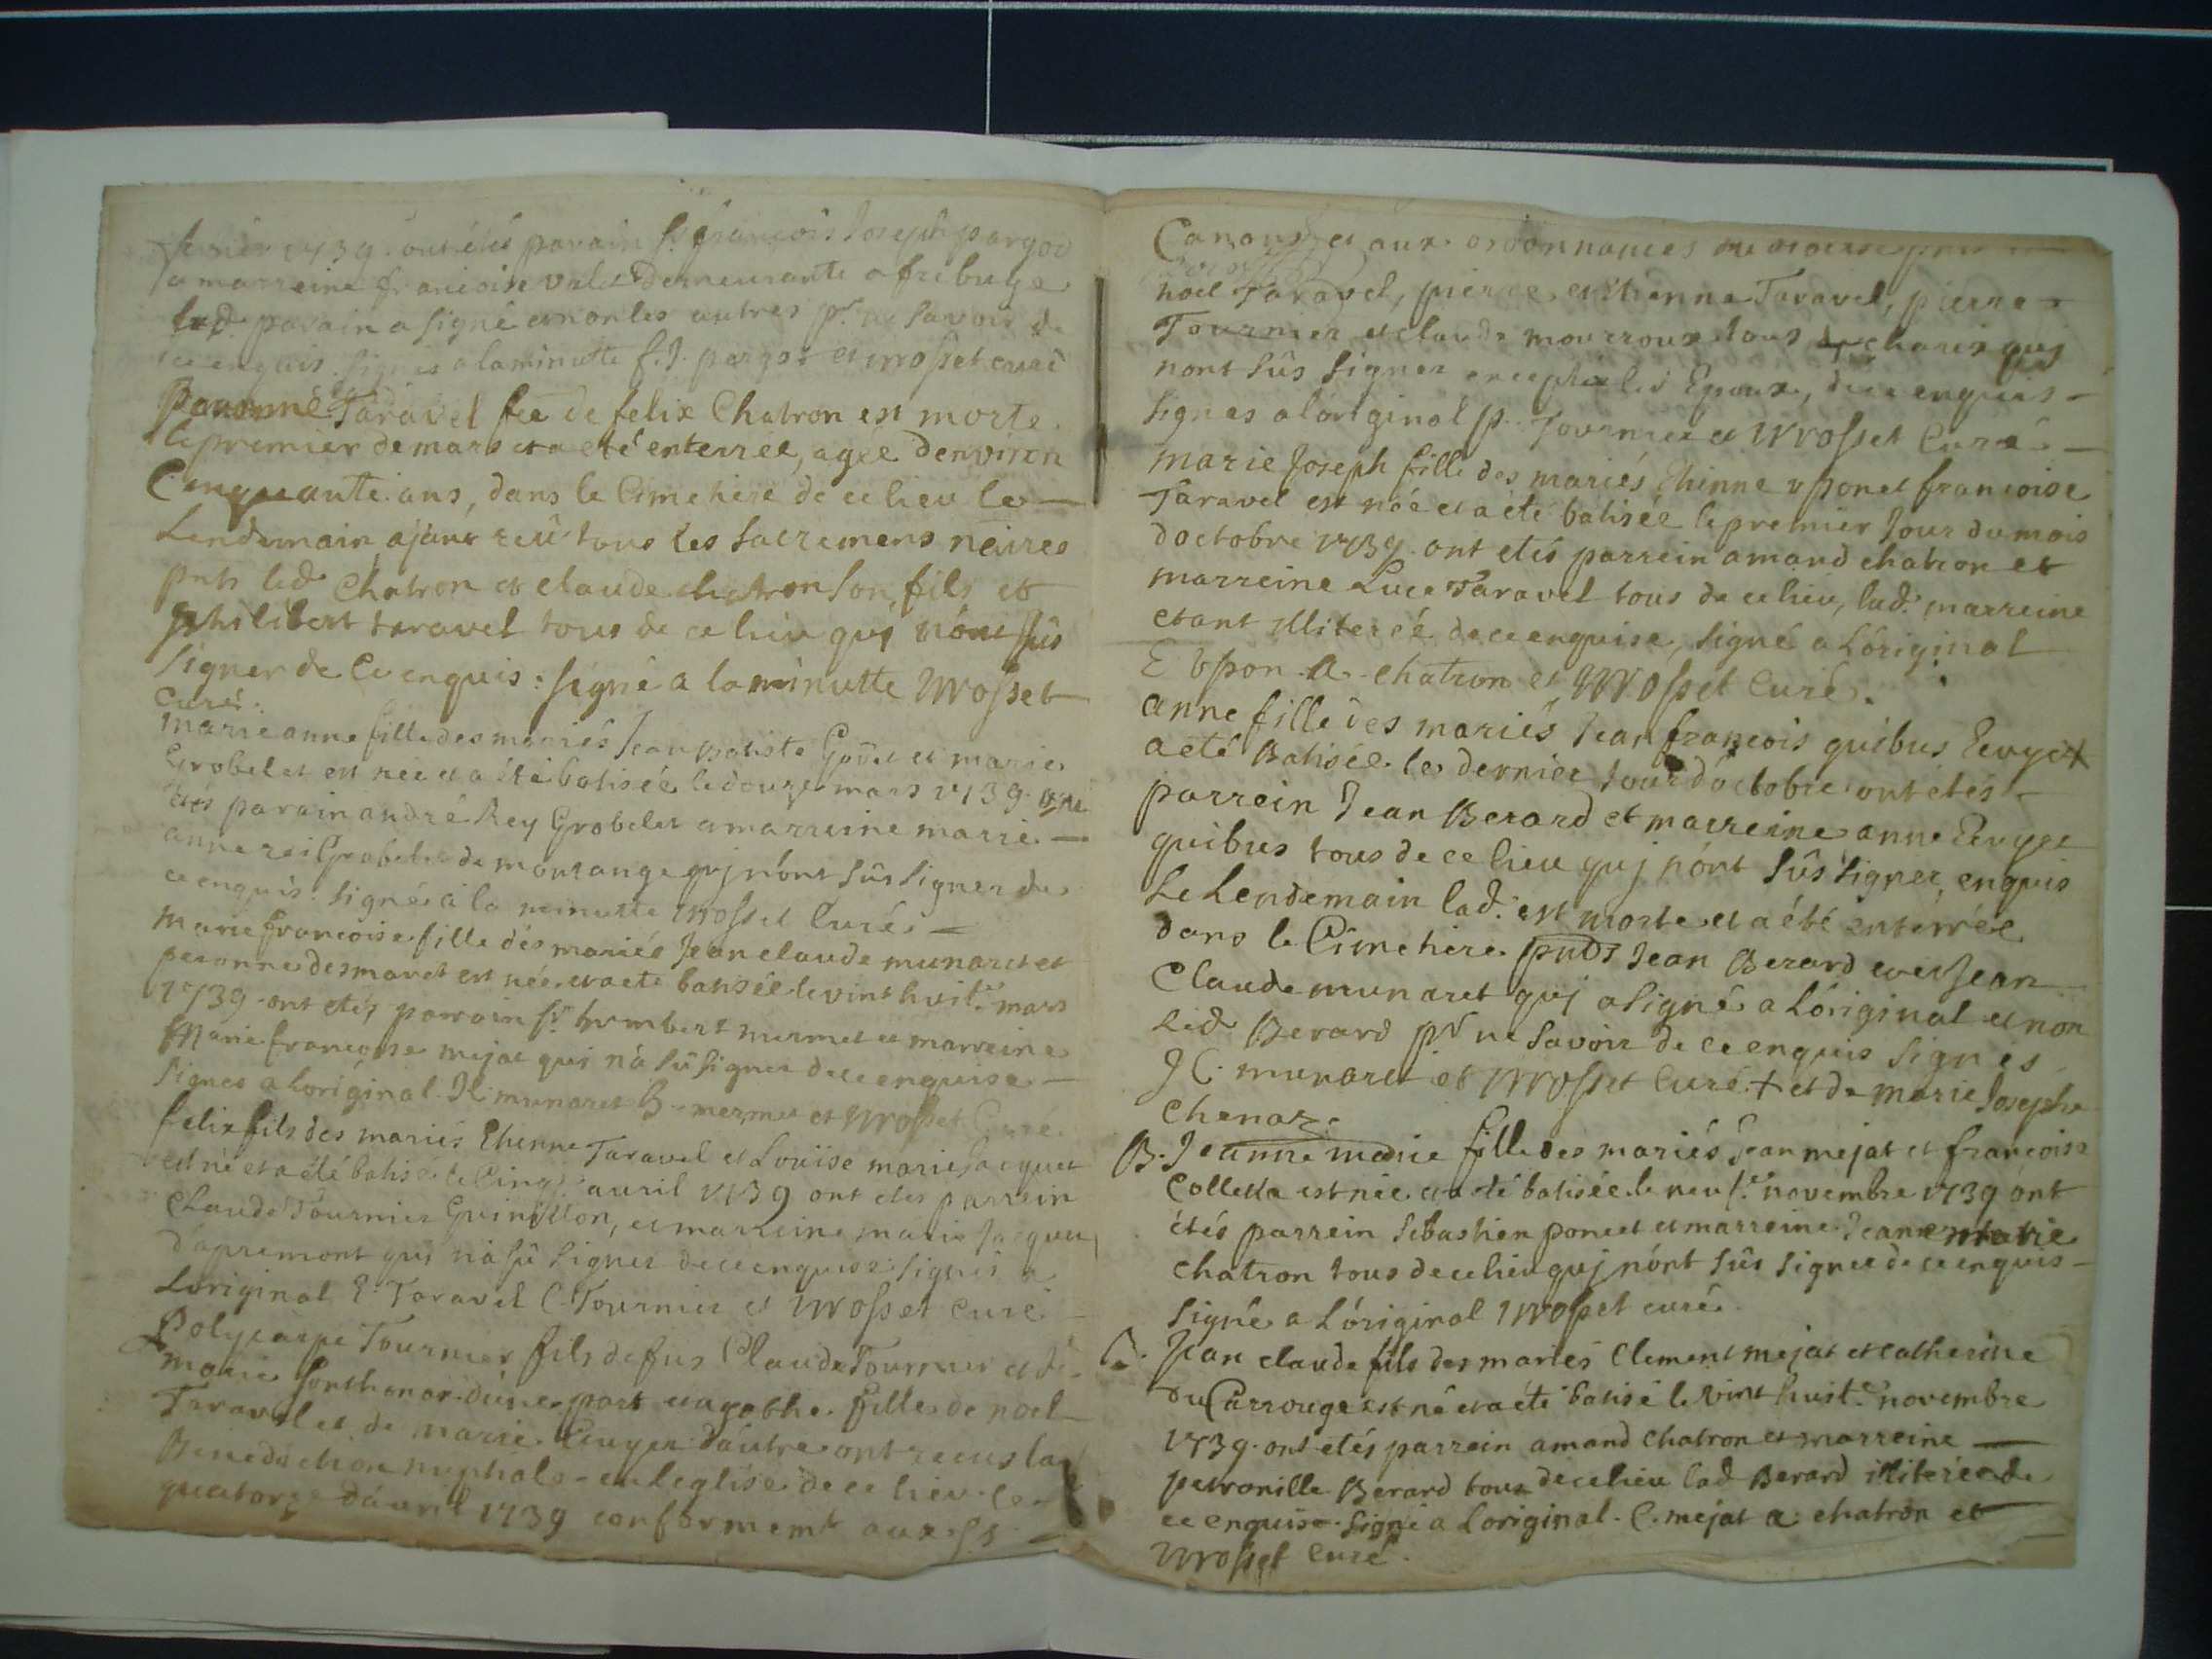 fevrier 1739. ont étés parain Sr. françois Joseph pargod
la marreine francoise vulet demeurante a frebuge
led. parain a signé et non les autres pr. ne savoir de
ce enquis. signés a la minutte f. J. pargod et Mosset curé
Taravel fee de felix Chatron est morte
le premier de mars et a eté enterrée, agée denviron
Cinquante ans, dans le Cimetiere de ce lieu le
Lendemain ajant reü tous les sacremens neires
pnts led Chatron et claude chatron son fils et
philibert taravel tous de ce lieu quj nónt sûs
signer de Ce enquis : signé a la minutte Mosset
Curé.
marie anne fille des mariés Jean Batiste et marie
Grobelet est née et a été batisée le douze mars 1739. ont
étés parain andré Rey Grobelet a marreine marie
anne rei Grobelet de montange quj nónt sûs signer de
ce enquis. signé a la minutte Mosset Curé.
marie francoise fille dés mariés Jean claude munaret et
peronne desmaret est née et a eté batisée le vint huite. mars
1739. ont etés parrain Sr. humbert mermet et marreine
Marie françoise mejat qui n'à sû signer de ce enquise
signés a Loriginal. JC munaret h. mermet et Mosset Curé.
felix fils des mariés Ethienne Taravel et Louïse marie Jacquet
est né et a été batisé le Cinqe. avril 1739 ont étés parrein
Claude Tournier Guinillon, et marreine marie Jacquet
d'apremont qui nà sû signer de ce enquise signés a
Loriginal E. Taravel C. Tournier et Mosset curé.
Polycarpe Tournier fils de fus Claude Tournier et de
marie fonthanar dúne part et agathe fille de noel
Taravel et de marie Ceuget daútre ont receus la
Benediction nuptiale en leglise de ce lieu le
quatorze davril 1739 conformemt aux Sts
Canons et aux ordonnances
noel Taravel, pierre et Ethienne Taravel, pierre
Tournier et claude mourroux tous de charix quj
nont sûs signer exceptés les Epoux, de ce enquis
signés a lóriginal p. Tournier et Mosset Curé.
marie Joseph fille des mariés Ethinne vpon et francoise
Taravel est née et a été batisée le premier Jour du mois
doctobre 1739. ont etés parrein amand chatron et
marreine Luce Taravel tous de ce lieu, lad. marreine
etant illiterée de ce enquise, signé a Lóriginal
E vpon. a. chatron et Mosset Curé.
anne fille des mariés Jean françois quibus Ceuget +
a eté Batisée le dernier Jour dóctobre ont etés
parrein Jean Berard et marreine anne Ceuget
quibus tous de ce lieu quj nónt sûs signer, enquis
Le Lendemain lad. est morte et a été enterrée
dans le Cimetiere pnds Jean Berard avec Jean
Claude munaret quj a signé a Lóriginal et non
Led Berard pr ne savoir de ce enquis signés
JC. munaret et Mosset Curé. + et de marie Josephe
chenaz.
B. Jeanne marie fille des mariés Jean mejat et francoise
Colletta est née et a eté batisée le neufe. novembre 1739 ont
étés parrein Sebastien poncet et marreine Jeanne marie
chatron tous de ce lieu quj nónt sûs signer de ce enquis
signé a Lóriginal Mosset curé.
B. Jean claude fils des mariés Clement mejat et catherine
du Carrouge est né et a été batisé le vint huite. novembre
1739. ont etés parrein amand chatron et marreine
petronille Berard tous de ce lieu lad Berard illiterée de
ce enquise. signé a Loriginal. C. mejat a. chatron et
Mosset Curé.